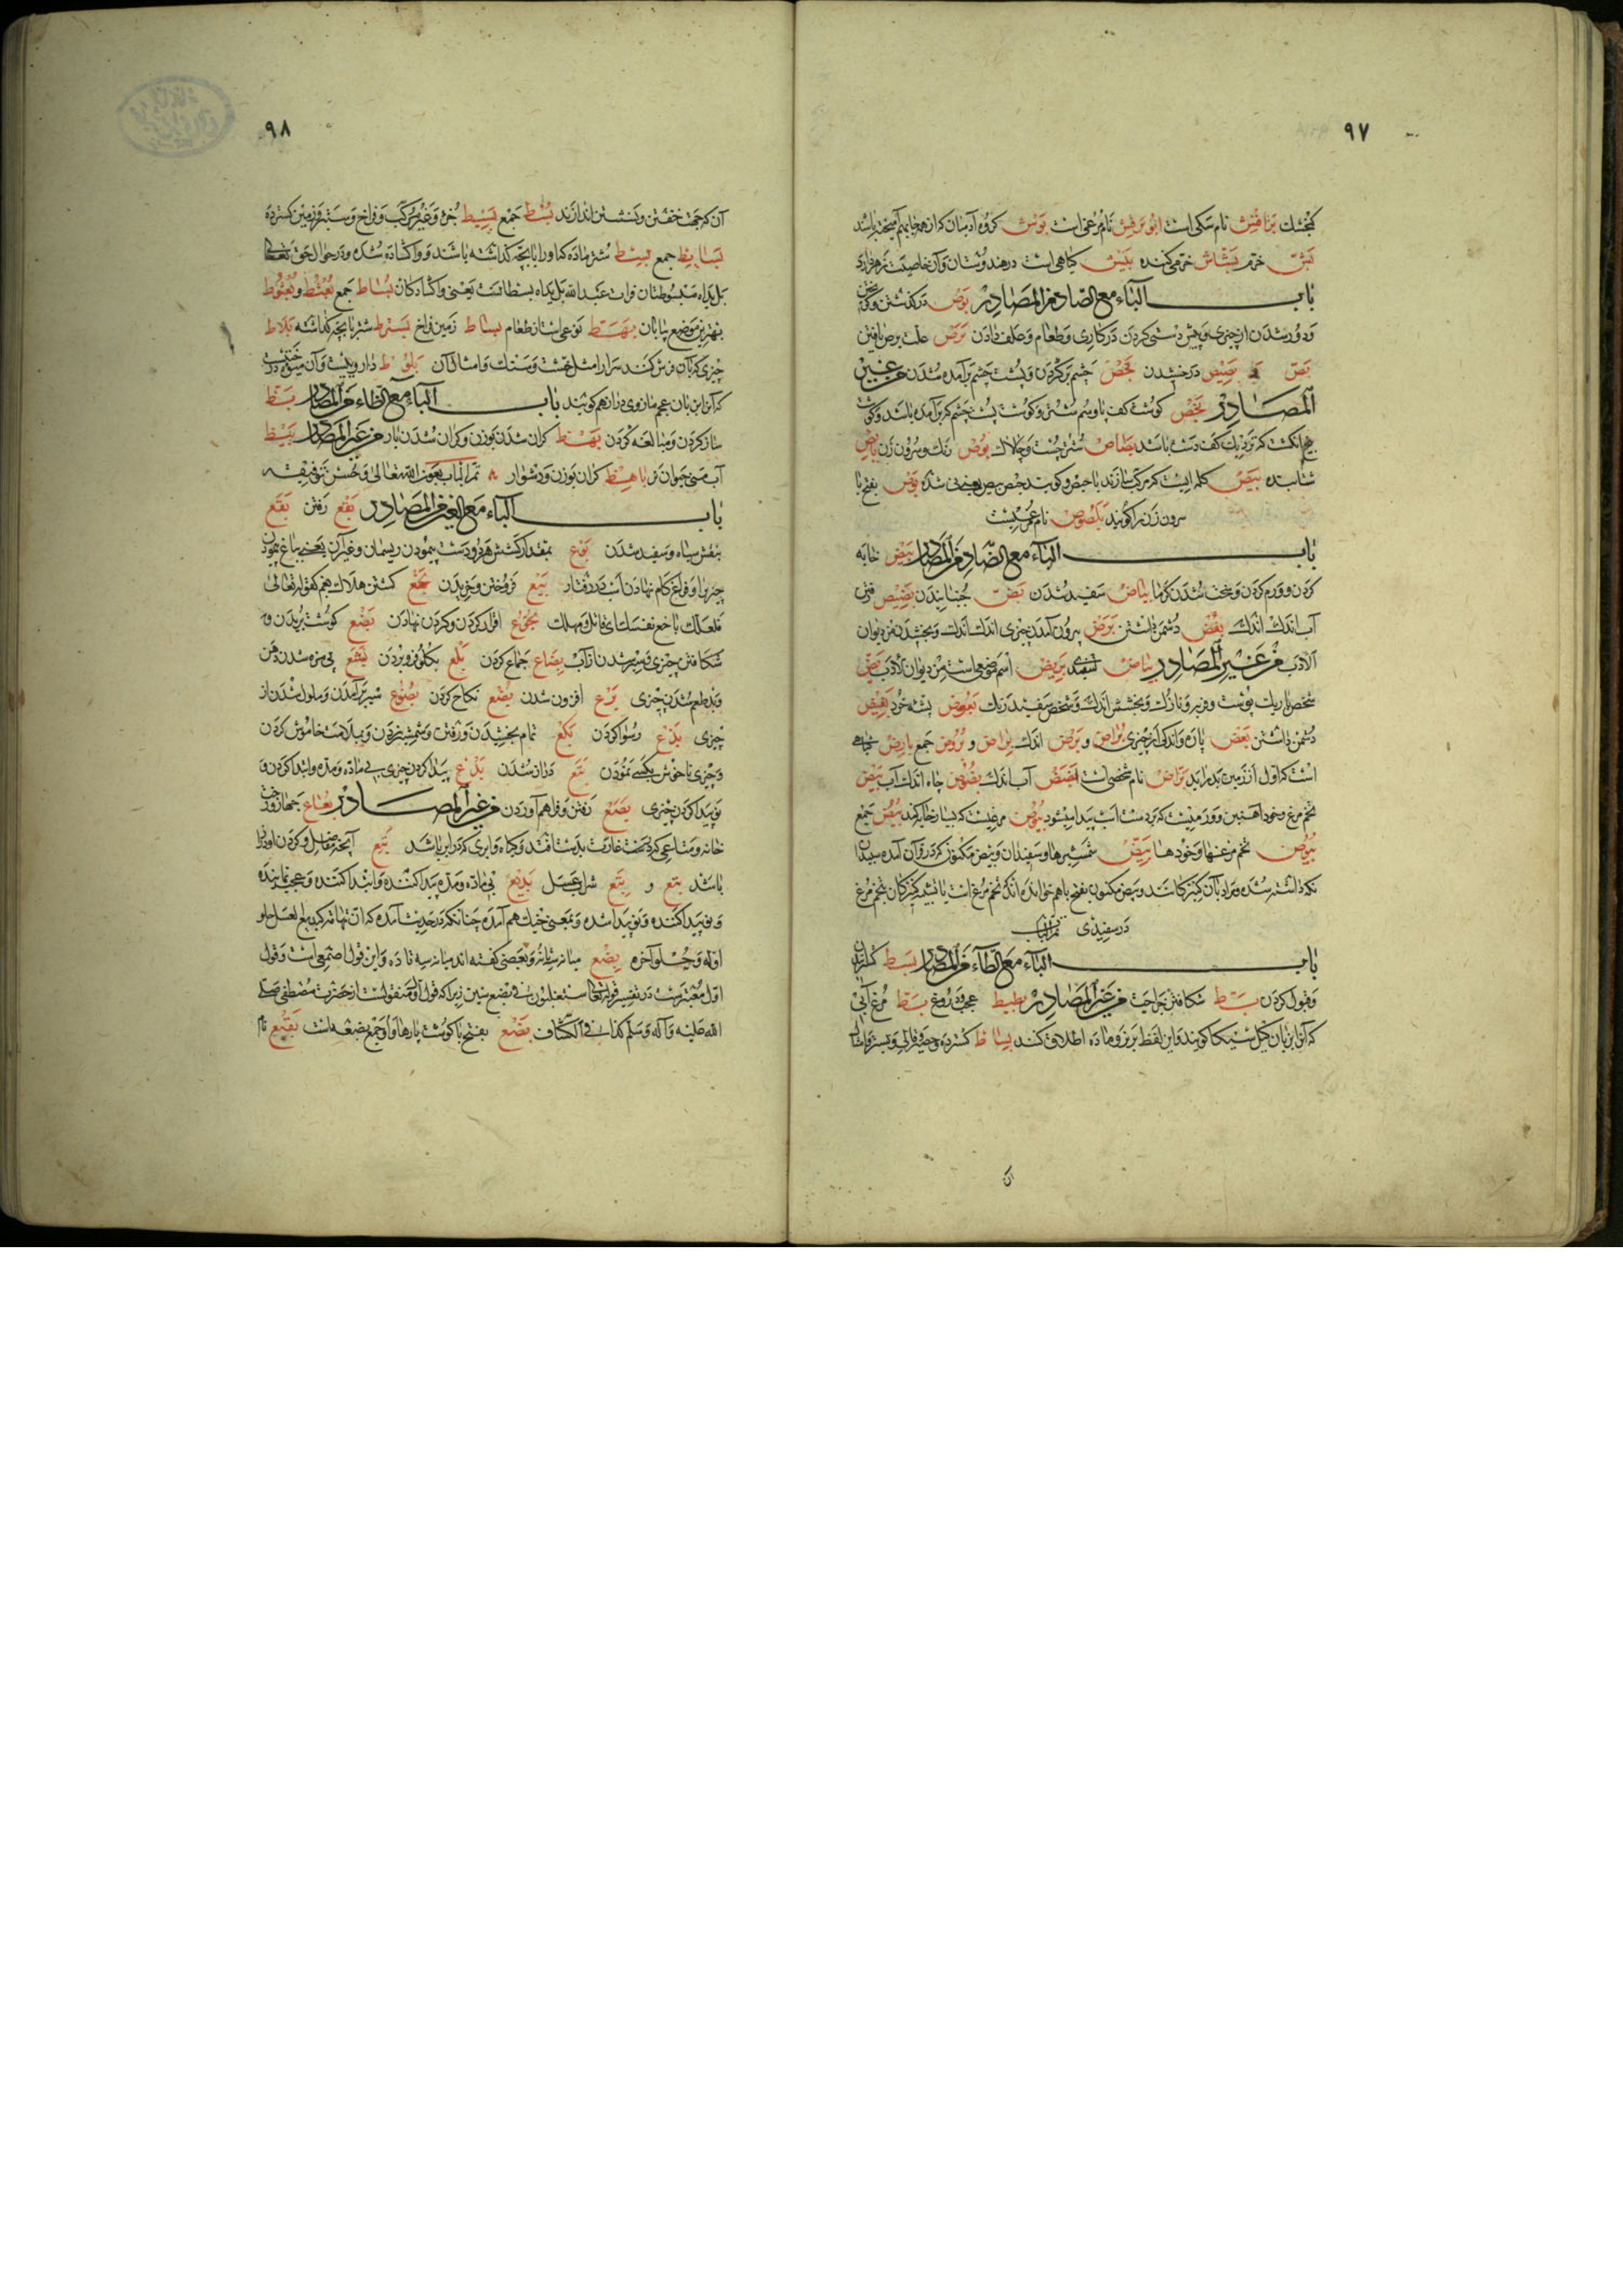 ٩٧
كنجشك براقش نام سكى است ابو براقش نام مرغى است بوش كروه آدميان كه از هر جا بهم آميخته باشند
بش خرم بشاش خرمى كننده بيش كياهى است در هندوستان و آن خاصيت زهر دارد
باب الباء مع الصاد من المصادر بوص در كذشتن و
و دور شدن از چيزى و پيش دستى كردن در كارى و طعام و صلف دادن برص علت برص يافتن
بص بصيص درخشيدن بخص چشم بركردن و پشت چشم برآمده شدن من غير
المصادر بخص كوشت كف پا و سم شتر و كوشت پشت چشم كه برآمده باشد و كوشت
بيخ انكشت كه نزديك كف دست باشد بصاص شتر چست و چالاك بوص رنك و سرون زن بايص
شتابنده بيص كلمه ايست كه مركب سازند با حيص و كويند حيص بيص يعنى شده بوص بفتح با
سرون زن را كويند بلصوص نام مرغيست
باب الباء مع الضاد من المصادر بيض خايه
كردن و ورم كردن و سخت شدن كرما بياض سفيد شدن بض جنبانيدن بضيض رفتن
آب اندك اندك بغض دشمن داشتن برض بيرون آمدن چيزى اندك اندك و بخشيدن من ديوان
الادب من غير المصادر بياض سفيدى بريض اسم موضعى است من ديوان الادب بض
شخص باريك پوست و فربه و نازك و بخشش اندك و شخص سفيد رنك بعوض پشه خرد بغيض
دشمن داشتن بعض پاره و اندكى از چيزى براض و برض اندك براض و بروض جمع بارض كياهى
است كه اول از زمين بدر آيد براض نام شخصى است بضض آب اندك بضوض چاه اندك آب بيض
تخم مرغ و خود آهنين و ورميست كه در دست اسب پيدا ميشود بيوض مرغيست كه بسيار خايه كند بيض جمع
بيوض تخم مرغها و خودها بيض شمشيرها و سفيدان و بيض مكنون كه در قرآن آمده سپيدان
نكه داشته شده و مراد بآن كنيزكانند و بيض مكنون بفتح با هم خوانده اند كه تخم مرغ است يا تشبيه كنيزكان بتخم مرغ
در سفيدى تم الباب
باب الباء مع الطاء من المصادر بسط كسترانيدن
و قبول كردن بط شكافتن جراحت من غير المصادر بطيط عجب و دروغ بط مرغ آبى
كه آنرا بزبان كيل سيكا كويند و اين لفظ بر نر و ماده اطلاق كنند بساط كسترده و حصير و قالى و بستر و امثال
آن
٩٨
آن كه جهت خفتن و نشستن اندازند بسط جمع بسيط جزء و غير مركب و فراخ و ستبر و زمين كسترده
بسايط جمع بسط شتر ماده كه او را با بچه كذاشته باشند و واكشاده شده و در حوال حق تعالى
بل يداه مبسوطتان قرات عبد الله بل يداه بسطان است يعنى واكشادكان بساط جمع بعثط و بعثوط
بهترين موضع بيابان بهط نوعى است از طعام بساط زمين فراخ بسط شتر با بچه كذاشته بلاط
چيزى كه بآن فرش كنند سرا را مثل خشت و سنك و امثال آن بلوط داروييست و آن ميوه درختيست
كه آنرا بزبان عجم مازوى دراز هم كويند باب الباء مع الظاء من المصادر بظ
ساز كردن و مبالغه كردن بهظ كران شدن بوزن و كران شدن بار من غير المصادر بيظ
آب منى حيوان نر باهظ كران بوزن و دشوار تم الباب بعون الله تعالى و حسن توفيقه
باب الباء مع العين من المصادر بقع رفتن بقع
بنفش سياه و سفيد شدن بوع بمقدار كشش هر دو دست پيمودن ريسمان و غير آن يعنى بباغ پيمودن
چيز را و فراخ كام نهادن اسب در رفتار بيع فروختن و خريدن بخع كشتن و هلاك هم كقوله تعالى
فلعلك باخع نفسك اى قاتل و مهلك بخوع اقرار كردن و كردن نهادن بضع كوشت بريدن و
شكافتن چيزى و سير شدن از آب بضاع جماع كردن بلع بكلو فرو بردن بشع بى مزه شدن دهن
و بد طعم شدن چيزى برع افزون شدن بضع نكاح كردن بضوع سير برآمدن و ملول شدن از
چيزى بدع رسوا كردن بكع تمام بخشيدن و رفتن و شمشير زدن و بملامت خاموش كردن
و چيزى ناخوش بكسى نمودن بتع دراز شدن بدع پيدا كردن چيزى بى ماده و مده و ابتدا كردن و
نو پيدا كردن چيزى بصع رفتن و فراهم آوردن من غير المصادر بعاع جهاز و رخت
خانه و متاعى كه در وقت غارت بدست افتد و كياه و ابرى كه در او باران باشد بتع آنچه مفاصل و كردن او دراز
باشد بتع و بتع شراب عسل بديع بى ماده و مده پيدا كننده و ابتدا كننده و عجب نماينده
و نو پيدا كننده و نو پيدا شده و بمعنى خيك هم آمده چنانكه در حديث آمده كه ان تهامة كبديع العسل حلو
اوله و حلو آخره بضع ميانه سه تا نه و بعضى كفته اند ميانه سه تا ده و اين قول اصمعى است و قول
اول معتبرست در تفسير قوله تعالى سيغلبون فى بضع سنين زيرا كه قول اول منقولست از حضرت مصطفى صلى
الله عليه و آله و سلم كذا فى الكشاف بضع بفتح با كوشت پارها و او جمع بضعه است بقيع نام